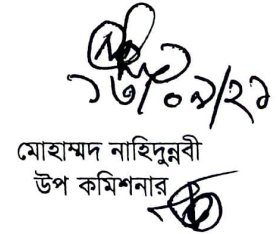 ১৩/০৯/২১
মোহাম্মদ নাহিদুন্নবী
উপ কমিশনার